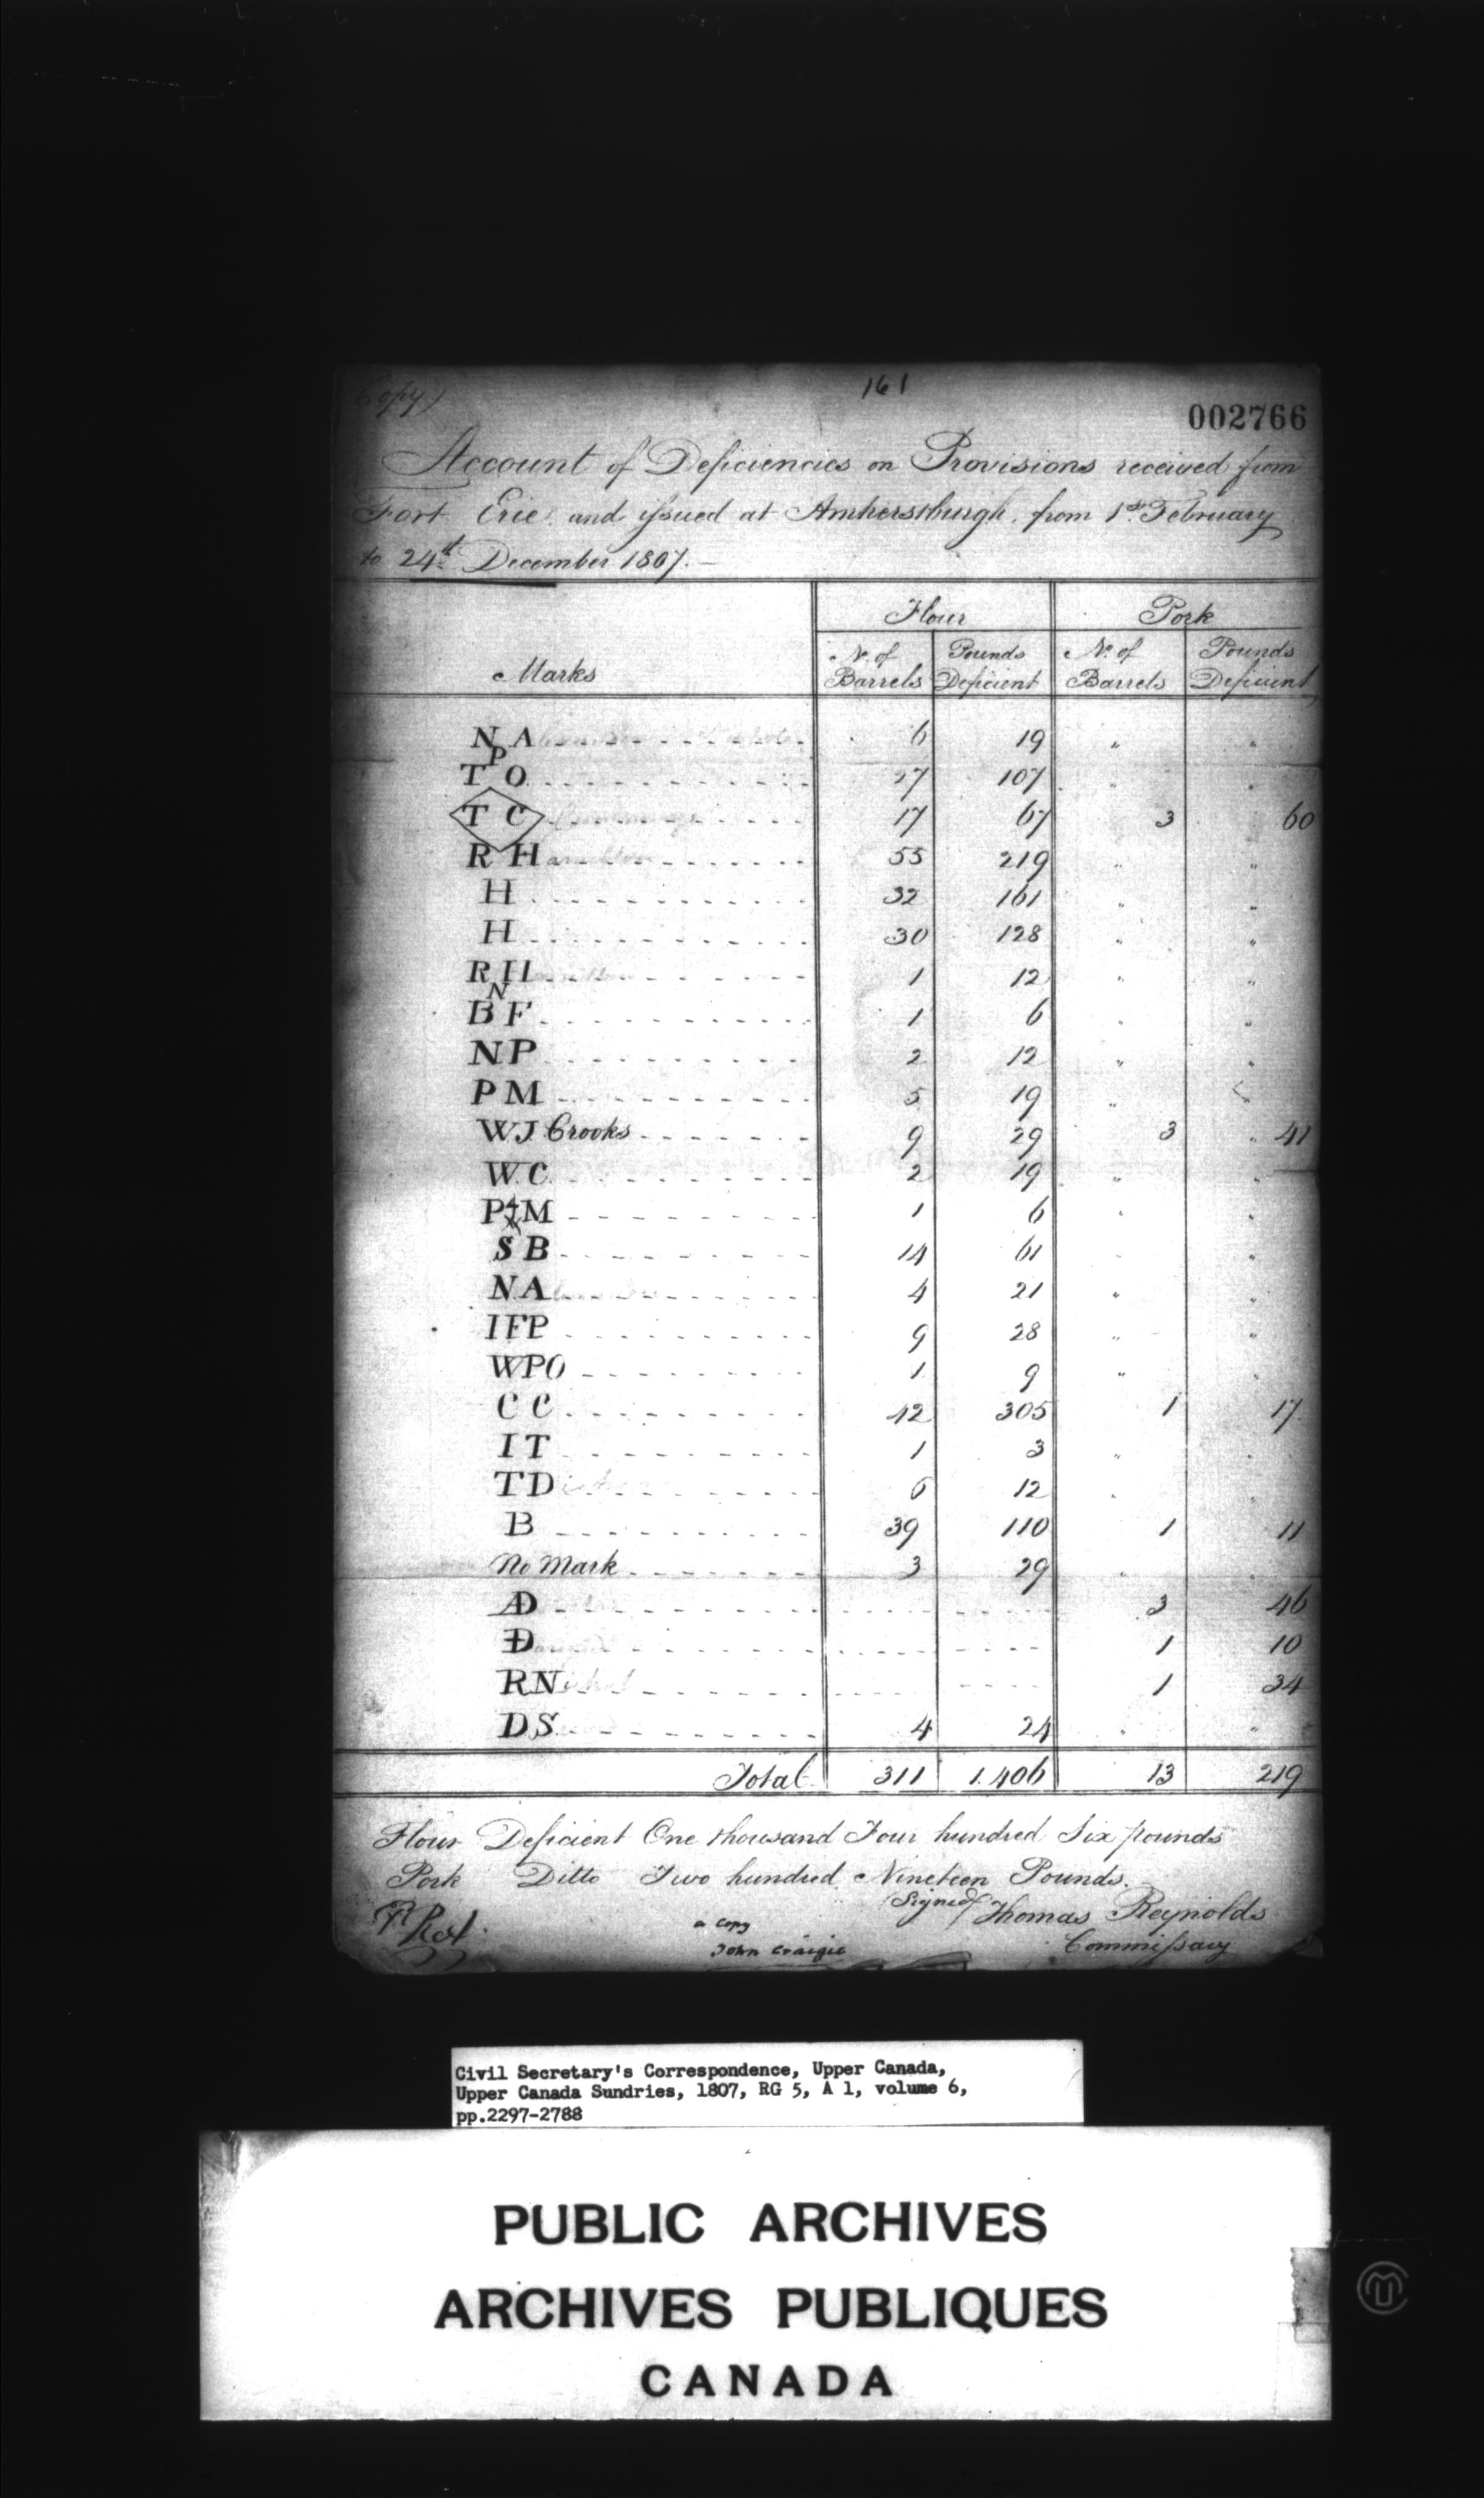 Copy)
161
002766
Account of Deficiencies on Provisions received from
Fort Erie and issued at Amherstburgh, from 1st February
to 24th December 1807.
Marks
Flour
Pork
No. of Barrels
Pounds Deficient
No. of Barrels
Pounds Deficient
N A 6 19 " "
P
T O 27 107 " "
T C 17 67 3 60
R H 55 219 " "
H 32 161 " "
H 30 128 " "
R H 1 12 " "
N
B F 1 6 " "
N P 2 12 " "
P M 5 19 " "
W J Crooks 9 29 3 41
W.C. 2 19 " "
P M 1 6 " "
S B 14 61 " "
N A 4 21 " "
IFP 9 28 " "
WPO 1 9 " "
C C 42 305 1 17
I T 1 3 " "
T D 6 12 " "
B 39 110 1 11
No Mark 3 29 " "
AD 3 46
D 1 10
R N 1 34
D S 4 24 " "
Total 311 1.406 13 219
Flour Deficient One thousand Four hundred Six pounds
Pork Ditto Two hundred Nineteen Pounds.
(Signed) Thomas Reynolds
Commissary
a Copy
John Craigie
Civil Secretary's Correspondence, Upper Canada,
Upper Canada Sundries, 1807, RG 5, A 1, volume 6,
pp.2297-2788
PUBLIC ARCHIVES
ARCHIVES PUBLIQUES
CANADA